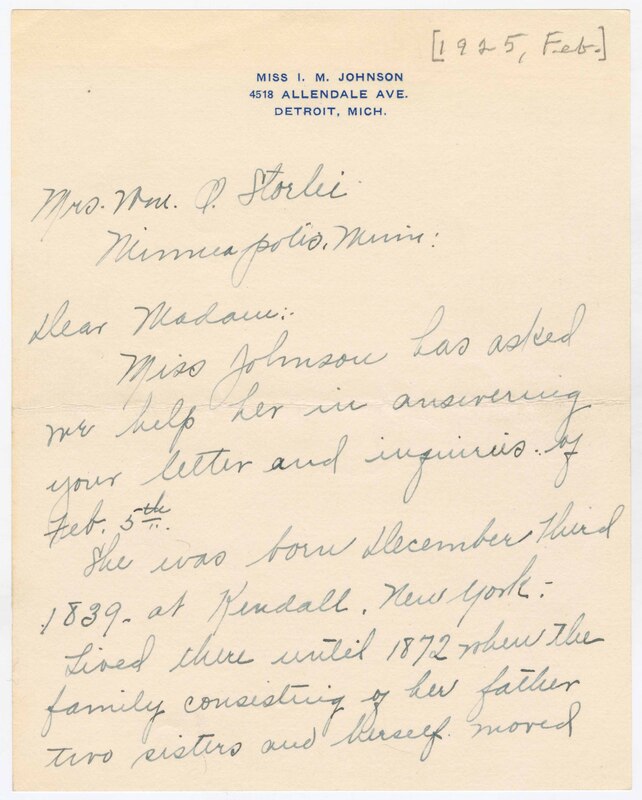 [1925, Feb.]
MISS I. M. JOHNSON
4518 ALLENDALE AVE.
DETROIT, MICH.
Mrs. Wm. O. Storlie
Minneapolis, Minn:
Dear Madam:.
Miss Johnson has asked
me help her in answering
your letter and inquiries of
Feb. 5th.
She was born December third
1839- at Kendall, New York:
Lived there until 1872 when the
family consisting of her father
two sisters and herself moved